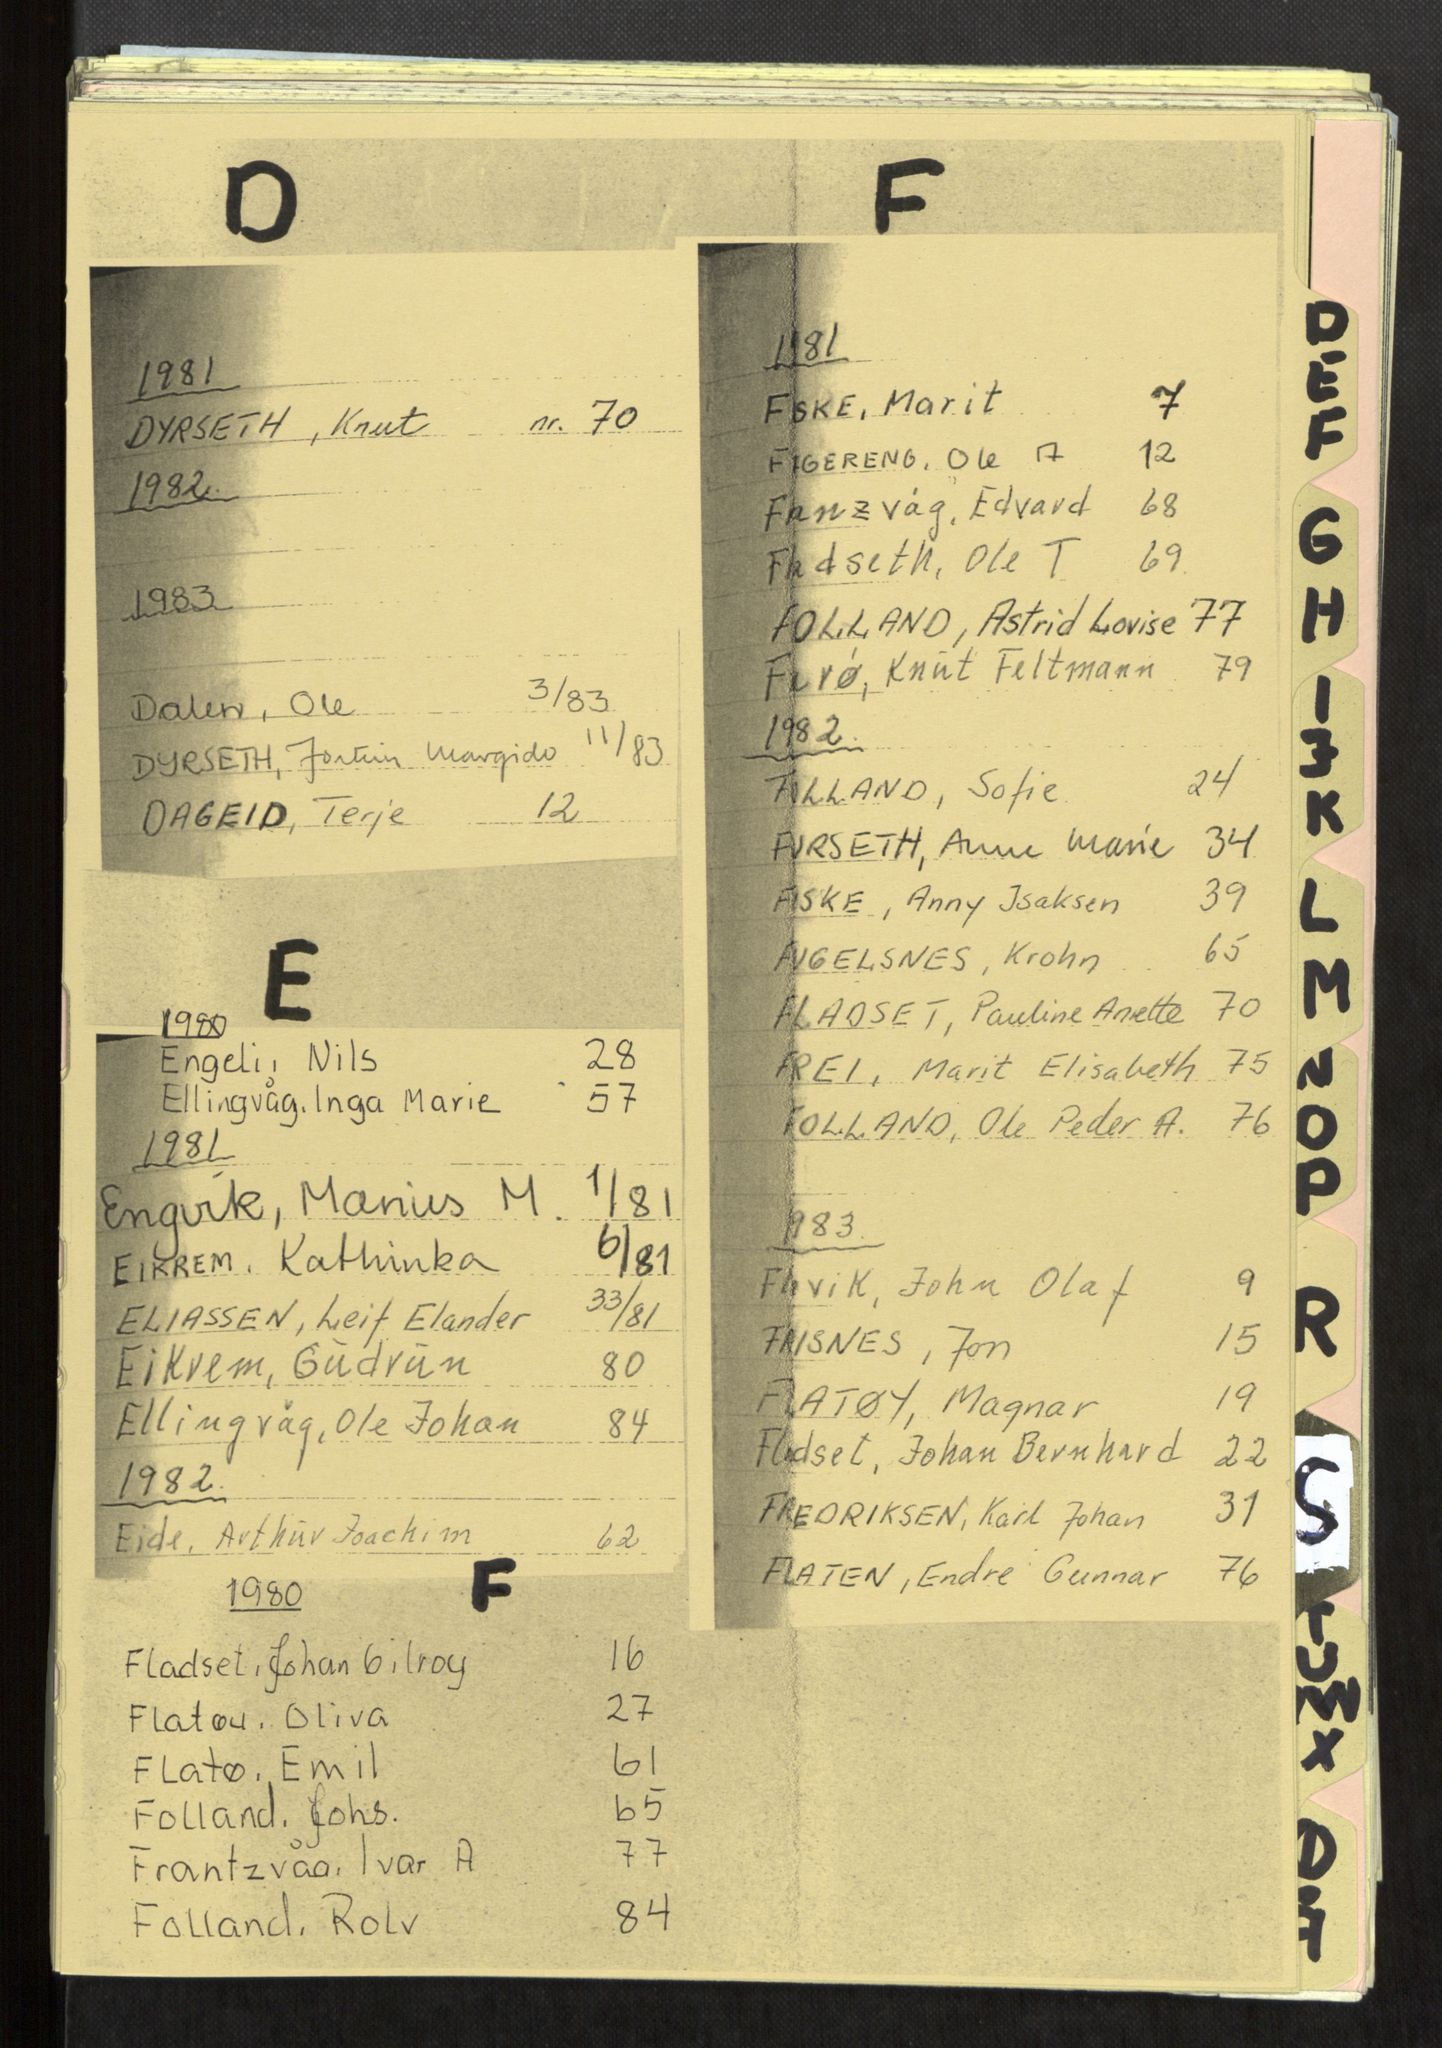 D
1981
DYRSETH, Knut nr. 70
1982.
1983
Dalen, Ole 3/83
DYRSETH, Jostein Margido 11/83
DAGEID, Terje 12
E
1980
Engeli, Nils 28
Ellingvåg. Inga Marie 57
1981
Engvik, Marius M. 1/81
EIKREM. Kathinka 6/81
ELIASSEN, Leif Elander 33/81
Eikrem, Gudrun 80
Ellingvåg, Ole Johan 84
1982.
Eide, Arthur Joachim 62
1980 F
Fladset, Johan Gilroy 16
Flatøy. Oliva 27
FLatø. Emil 61
Folland. Johs. 65
Frantzvåg. Ivar A 77
Folland. Rolv 84
F
1981
FISKE, Marit 7
FAGERENG. Ole A 12
Franzvåg, Edvard 68
Fladseth, Ole T 69
FOLLAND, Astrid Lovise 77
Knut Feltmann 79
1982.
FOLLAND, Sofie 24
FURSETH, Anne Marie 34
FISKE, Anny Isaksen 39
FUGELSNES, Krohn 65
FLADSET, Pauline Anette 70
FREI, Marit Elisabeth 75
FOLLAND, Ole Peder A. 76
1983.
John Olaf 9
Jon 15
FLATØY, Magnar 19
Fladset, Johan Bernhard 22
FREDRIKSEN, Karl Johan 31
FLATEN, Endre Gunnar 76
D
E
F
G
H
I
J
K
L
M
N
O
P
R
S
T
U
W
X
Ø